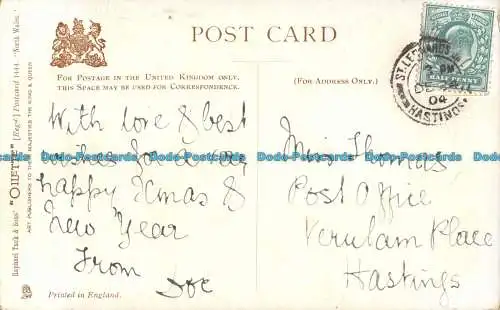 POST CARD
FOR POSTAGE IN THE UNITED KINGDOM ONLY,
THIS SPACE MAY BE USED FOR CORRESPONDENCE.
(FOR ADDRESS ONLY.)
HALFPENNY
ST LEONARDS
04
HASTINGS
Raphael Tuck & Sons' "OILETTE" [Regd] Postcard 1444 "North Wales"
ART PUBLISHERS TO THEIR MAJESTIES THE KING & QUEEN
With love & best
wishes for a very
happy Xmas &
New Year
From
Joe
Miss Thomas
Post Office
Verulam Place
Hastings
Printed in England.
Dodo-Postcards